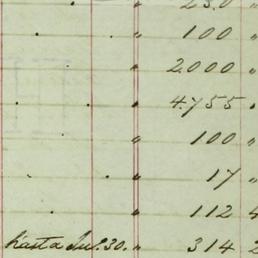 " 250 "
" 100 "
" 2000 "
" 4.755 .
" 100 "
" 17 "
" 112 4
hasta Ju.º 30. " 314 2